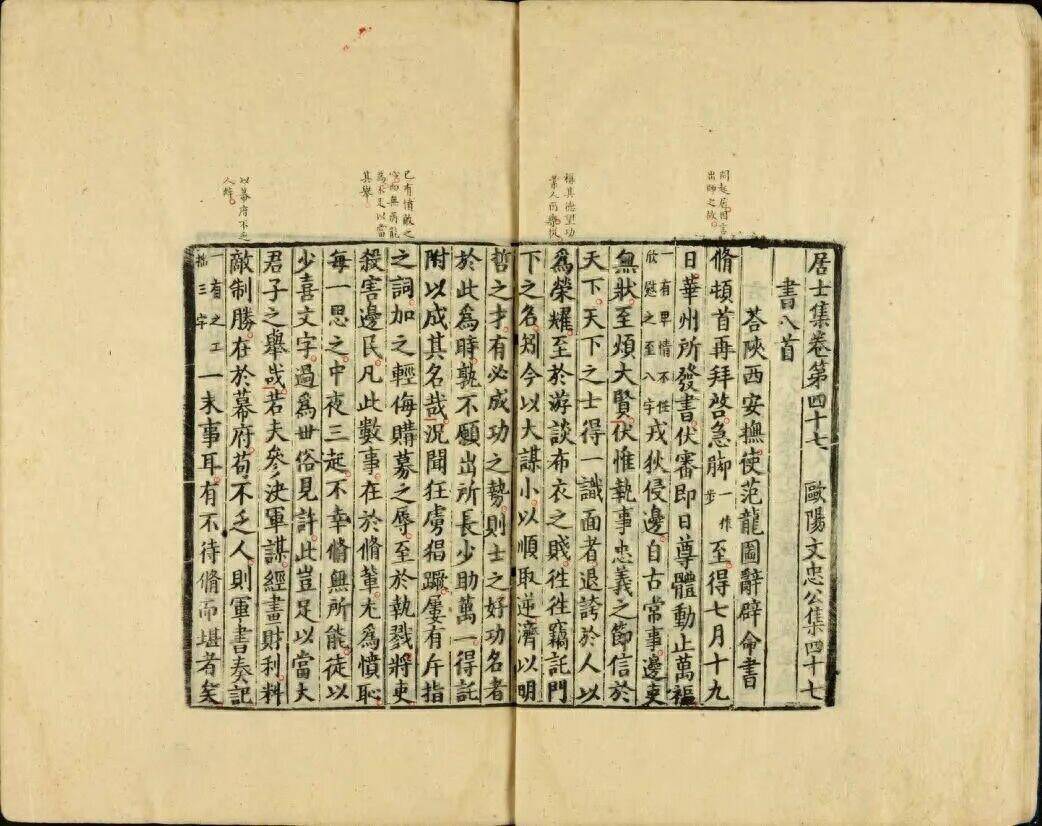 居士集卷第四十七　歐陽文忠公集四十七
書八首
荅陝西安撫使范龍圖辭辟命書
脩頓首再拜啓急脚
一作
步
至得七月十九
日華州所發書伏審即日尊體動止萬福
一有卑情不任
欣慰之至八字
戎狄侵邊自古常事邊吏
無狀至煩大賢伏惟執事忠義之節信於
天下天下之士得一識面者退誇於人以
爲榮耀至於游談布衣之賤徃徃竊託門
下之名矧今以大謀小以順取逆濟以明
哲之才有必成功之勢則士之好功名者
於此爲時孰不願出所長少助萬一得託
附以成其名哉況聞狂虜猖蹶屢有斥指
之詞加之輕侮購募之辱至於執戮將吏
殺害邊民凡此數事在於脩輩尤爲憤恥
每一思之中夜三起不幸脩無所能徒以
少喜文字過爲世俗見許此豈足以當大
君子之舉哉若夫參決軍謀經畫財利料
敵制勝在於幕府苟不乏人則軍書奏記
一有之工
拙三字
一末事耳有不待脩而堪者矣
問起居因言
出師之故
稱其德望功
業人而樂從
已有憤敵之
而無
爲不足以當
其舉
以幕府不乏
人辭